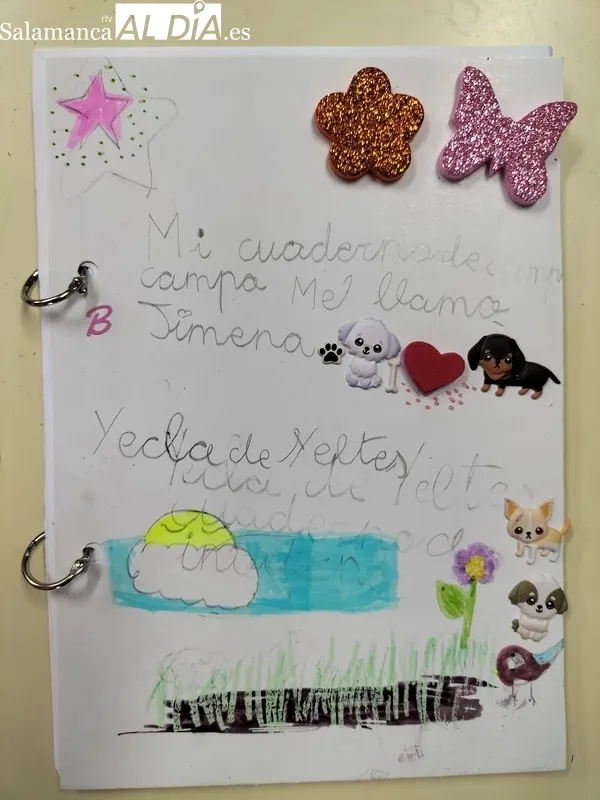 rtv
SalamancaALDÍA.es
Mi cuaderno de
campo Me llamo
B Jimena
Yecla de Yeltes
Yecla de Yeltes
cuaderno d